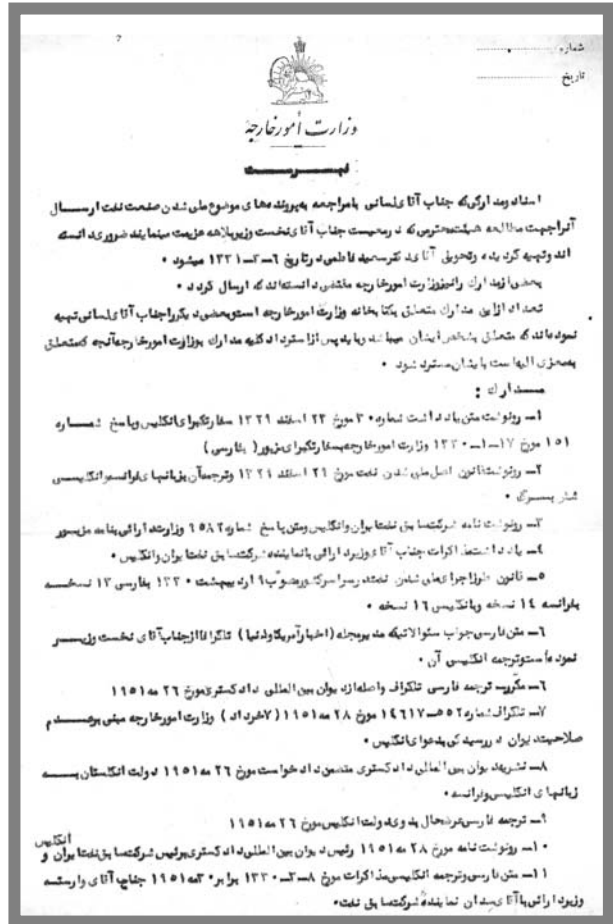 شماره
تاریخ
وزارت امور خارجه
فهرست
اسناد و مدارکی که جناب آقای لسانی با مراجعه به پرونده های موضوع ملی شدن صنعت نفت ارسال
آنرا جهت مطالعه هیئت محترمی که در معیت جناب آقای نخست وزیر بلاهه عزیمت مینمایند ضروری دانسته
اند و تهیه گردیده و تحویل آقای دکتر سعید فاطمی در تاریخ ۶-۳-۱۳۳۱ میشود ۰
بعضی از مدارک را نیز وزارت امور خارجه مقتضی دانسته اند که ارسال گردد ۰
تعداد از این مدارک متعلق بکتابخانه وزارت امور خارجه است و بعضی دیگر را جناب آقای لسانی تهیه
نموده اند که متعلق بشخص ایشان میباشد و باید پس از استرداد کلیه مدارک بوزارت امور خارجه آنچه که متعلق
بمعزی الیه است بایشان مسترد شود ۰
مدارک :
۱- رونوشت متن یادداشت شماره ۳۰ مورخ ۲۳ اسفند ۱۳۲۹ سفارتکبرای انگلیس و پاسخ شماره
۱۵۱ مورخ ۱۷-۱-۱۳۳۰ وزارت امور خارجه بسفارتکبرای مزبور ( بفارسی )
۲- رونوشت قانون اصل ملی شدن نفت مورخ ۲۹ اسفند ۱۳۲۹ و ترجمه آن بزبانهای فرانسه و انگلیسی
شش برگ ۰
۳- رونوشت نامه شرکت سابق نفت ایران و انگلیس و متن پاسخ شماره ۱۵۸۲ وزارت دارائی بنامه مزبور
۴- یادداشت مذاکرات جناب آقای وزیر دارائی با نماینده شرکت سابق نفت ایران و انگلیس ۰
۵- قانون طرز اجرای ملی شدن نفت در سراسر کشور مصوب ۹ اردیبهشت ۱۳۳۰ بفارسی ۱۳ نسخه
بفرانسه ۱۴ نسخه و بانگلیسی ۱۶ نسخه ۰
۶- متن فارسی جواب سئوالاتیکه مدیر مجله (اخبار آمریکا و دنیا) تلگرافا از جناب آقای نخست وزیر
نموده است و ترجمه انگلیسی آن ۰
۶- مکرر- ترجمه فارسی تلگراف واصله از دیوان بین المللی دادگستری مورخ ۲۶ مه ۱۹۵۱
۷- تلگراف شماره ۵۵۲-۱۴۶۱۷ مورخ ۲۸ مه ۱۹۵۱ (۷خرداد) وزارت امور خارجه مبنی بر عدم
صلاحیت دیوان در رسیدگی بدعوای انگلیس ۰
۸- نشریه دیوان بین المللی دادگستری متضمن دادخواست مورخ ۲۶ مه ۱۹۵۱ دولت انگلستان به
زبانهای انگلیسی و فرانسه ۰
۹- ترجمه فارسی عرضحال بدوی دولت انگلیس مورخ ۲۶ مه ۱۹۵۱
۱۰- رونوشت نامه مورخ ۲۸ مه ۱۹۵۱ رئیس دیوان بین المللی دادگستری برئیس شرکت سابق نفت ایران و انگلیس
۱۱- متن فارسی و ترجمه انگلیسی مذاکرات مورخ ۸-۳-۱۳۳۰ برابر ۳۰ مه ۱۹۵۱ جناب آقای وارسته
وزیر دارائی با آقای سدان نماینده شرکت سابق نفت۰